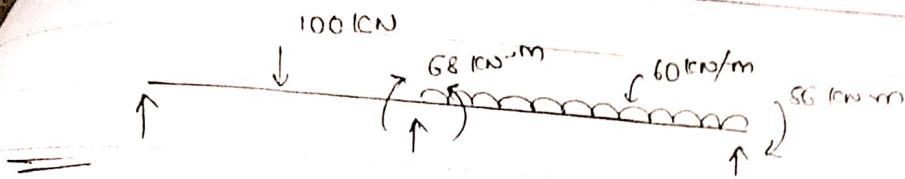 100 KN
68 KN-m
60 KN/m
56 KN m